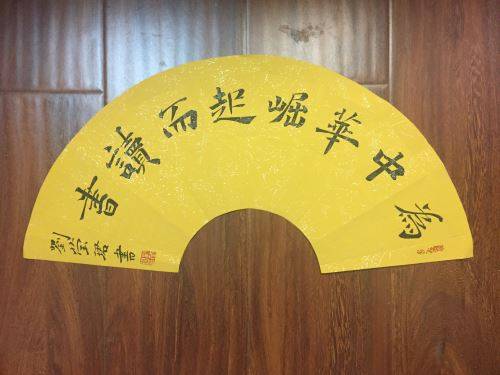 為中華崛起而讀書
劉書